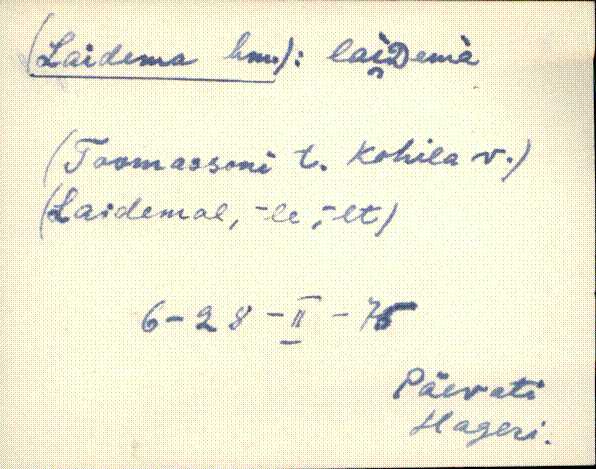 (Laidema hm.): laiDemà
(Toomassoni t. Kohila v.)
(Laidemal, -le, -lt)
6-28-II-75
Päevati
Hageri.